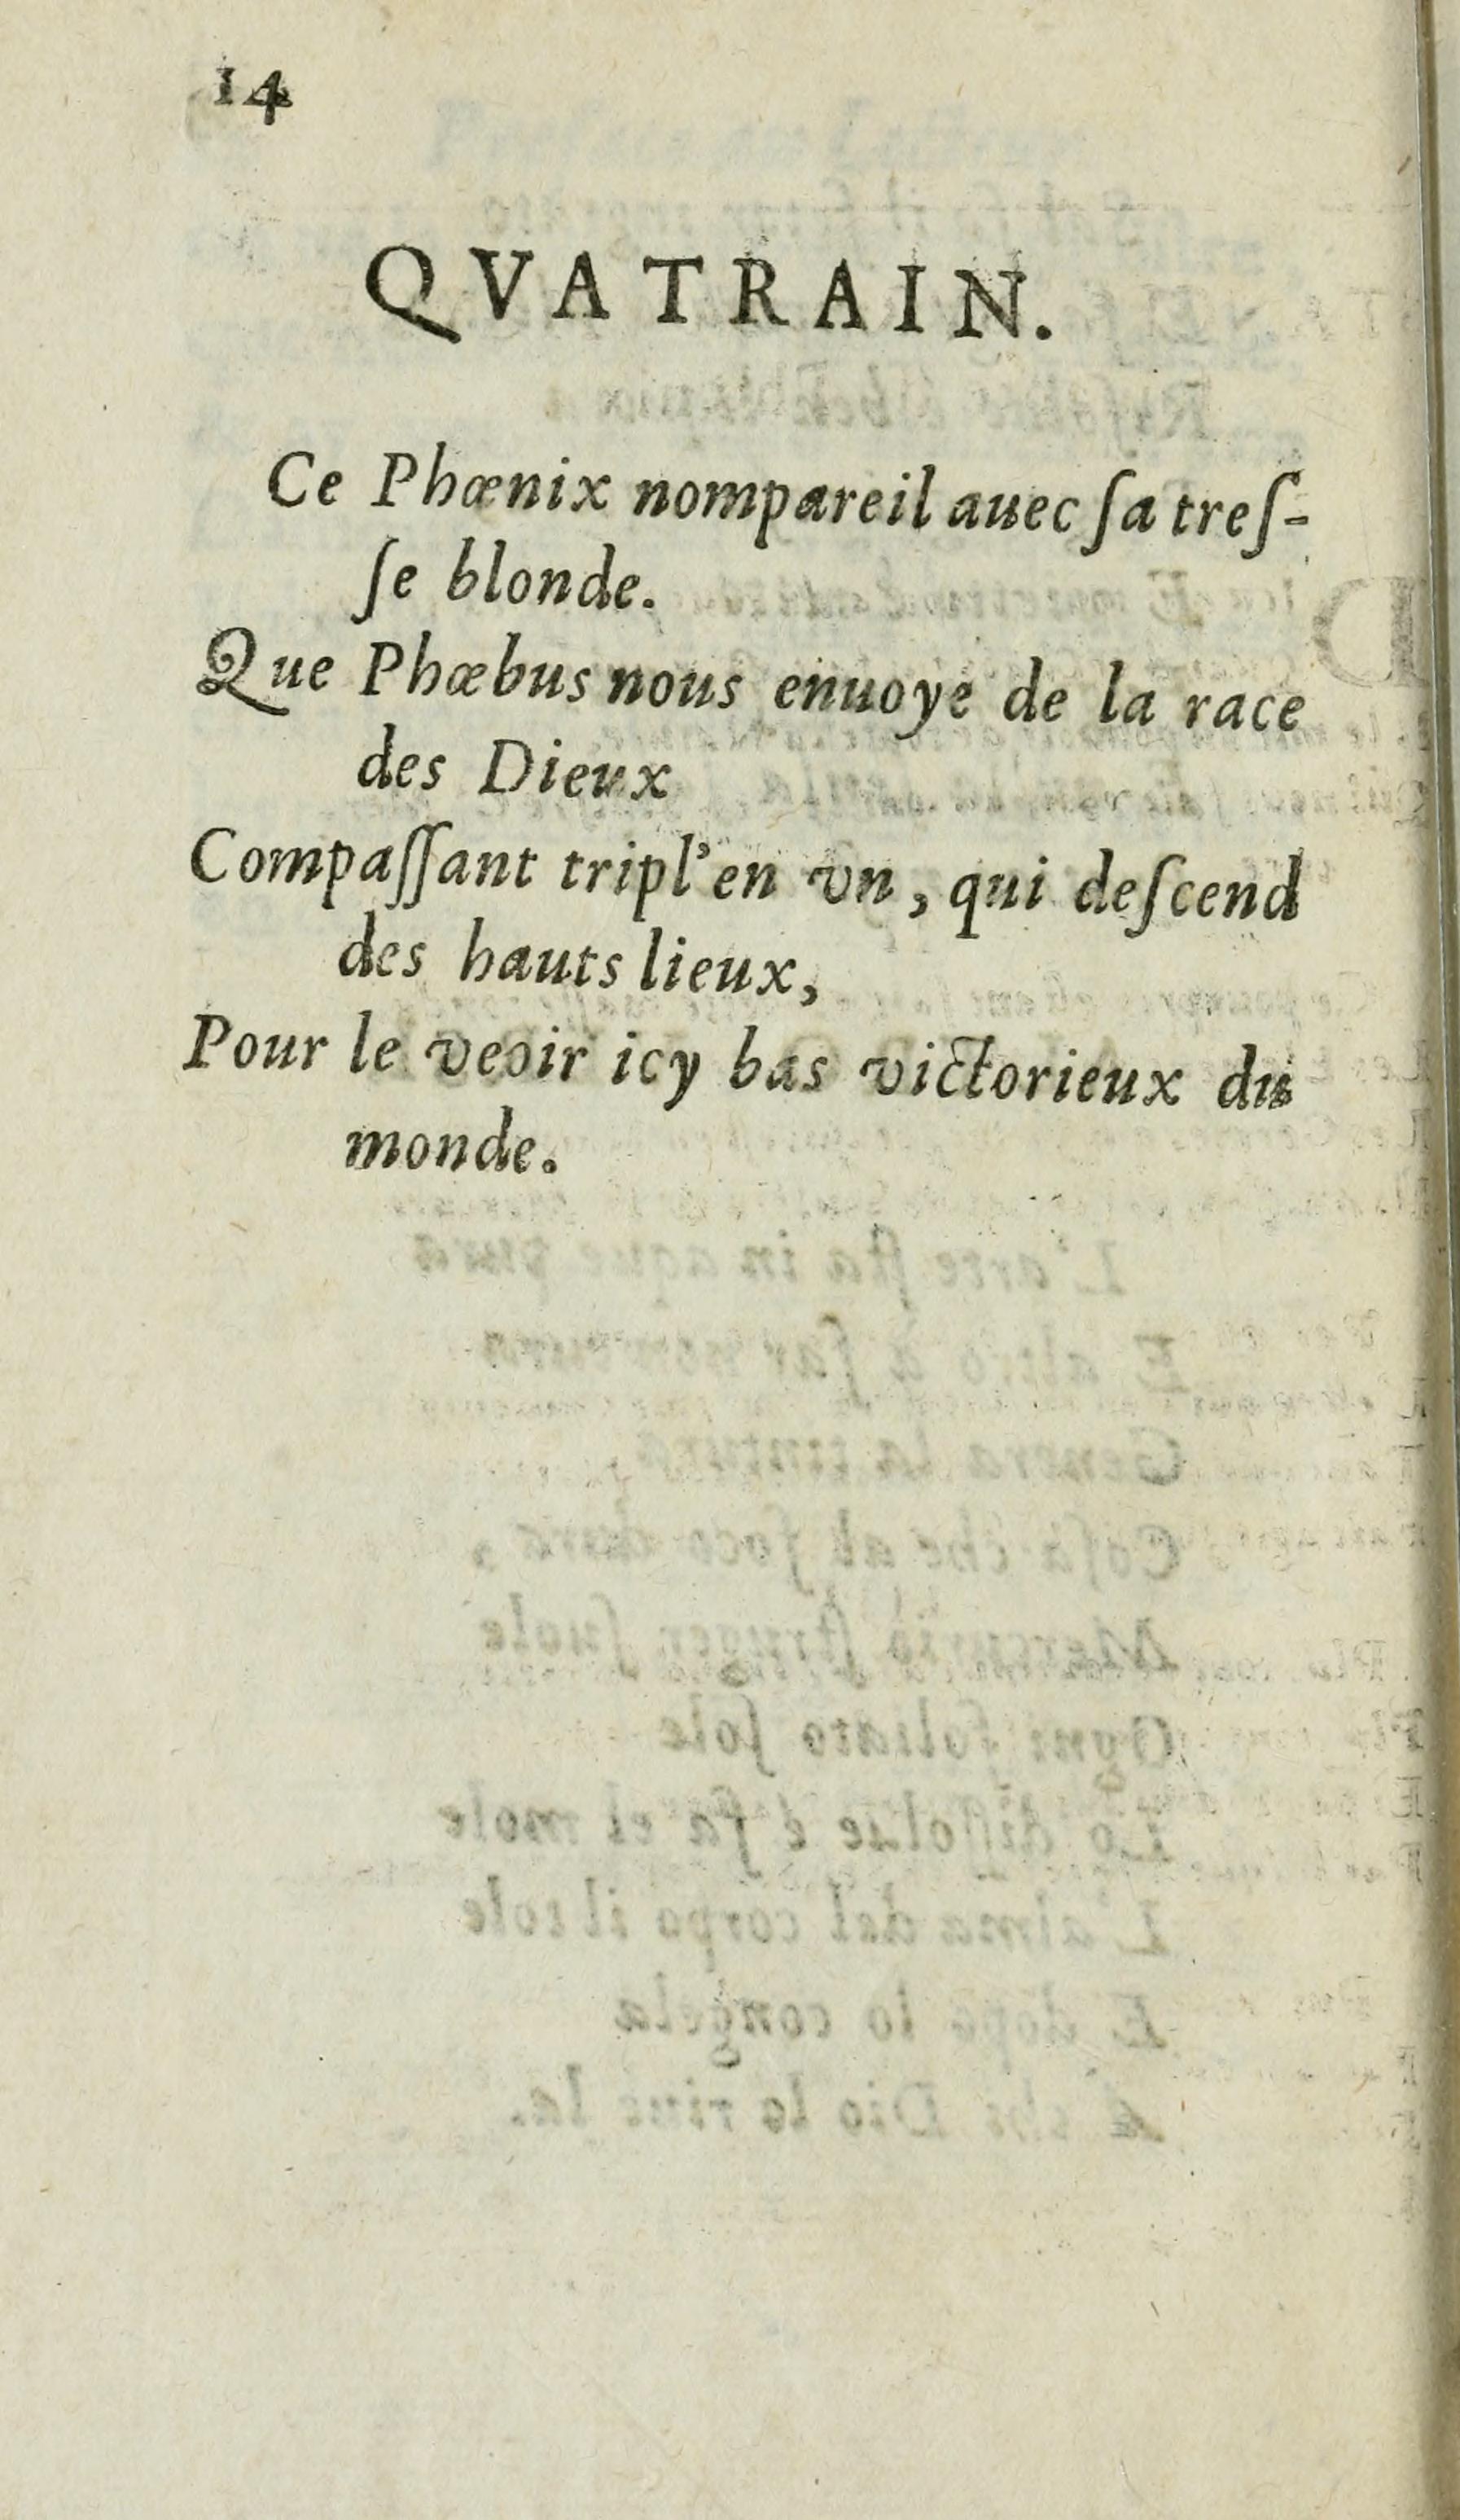 14
QVATRAIN.
Ce Phœnix nompareil auec ſa treſ-
ſe blonde.
Que Phœbus nous enuoye de la race
des Dieux
Compaſſant tripl'en vn, qui deſcend
des hauts lieux,
Pour le veoir icy bas victorieux du
monde.